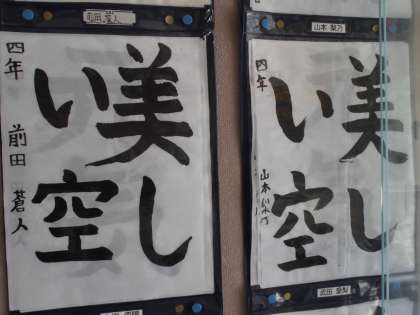 前田 蒼人
美し
い空
四年 前田 蒼人
山本 梨乃
美し
い空
四年 山本 梨乃
武田 愛梨